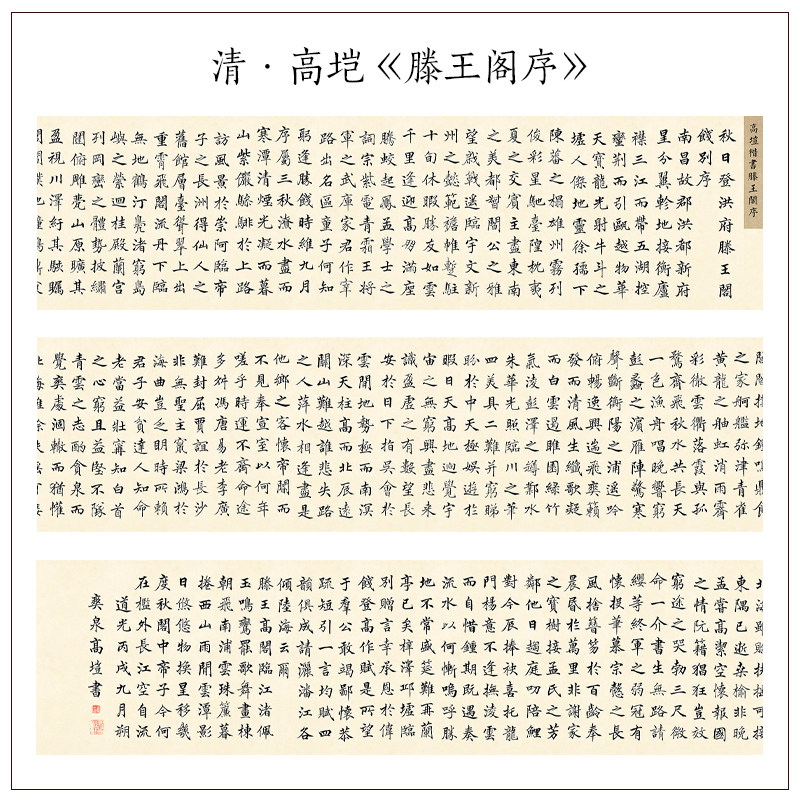 清·高垲《滕王阁序》
高塏楷書滕王閣序
秋日登洪府滕王閣
餞別序
南昌故郡洪都新府
星分翼軫地接衡廬
襟三江而帶五湖控
蠻荊而引甌越物華
天寶龍光射牛斗之
墟人傑地靈徐孺下
陳蕃之榻雄州霧列
俊彩星馳臺隍枕夷
夏之交賓主盡東南
之美都督閻公之雅
望棨戟遙臨宇文新
州之懿範襜帷暫駐
十旬休暇勝友如雲
千里逢迎高朋滿座
騰蛟起鳳孟學士之
詞宗紫電青霜王將
軍之武庫家君作宰
路出名區童子何知
躬逢勝餞時維九月
序屬三秋潦水盡而
寒潭清煙光凝而暮
山紫儼驂騑於上路
訪風景於崇阿臨帝
子之長洲得仙人之
舊館層臺聳翠上出
重霄飛閣流丹下臨
無地鶴汀鳧渚窮島
嶼之縈迴桂殿蘭宮
列岡巒之體勢披繡
闥俯雕甍山原曠其
盈視川澤紆其駭矚
之家舸艦弥津青雀
黃龍之舳虹消雨霽
彩徹雲衢落霞與孤
鶩齊飛秋水共長天
一色漁舟唱晚響窮
彭蠡之濱雁陣驚寒
聲斷衡陽之浦遙吟
俯暢逸興遄飛爽籟
發而清風生纖歌凝
而白雲遏睢園綠竹
氣淩彭澤之罇鄴水
朱華光照臨川之筆
四美具二難并窮睇
眄於中天極娛遊於
暇日天高地迥覺宇
宙之無窮興盡悲來
識盈虛之有數望長
安於日下指吳會於
雲間地勢極而南溟
深天柱高而北辰遠
關山難越誰悲失路
之人萍水相逢盡是
他鄉之客懷帝閽而
不見奉宣室以何年
嗟乎時運不齊命途
多舛馮唐易老李廣
難封屈賈誼於長沙
非無聖主竄梁鴻於
海曲豈乏明時所賴
君子安貧達人知命
老當益壯寧知白首
之心窮且益堅不隊
青雲之志酌貪泉而
覺爽處涸轍而猶懽
東隅已逝桑榆非晚
孟嘗高潔空懷報國
之情阮籍猖狂豈效
窮途之哭勃三尺微
命一介書生無路請
纓等終軍之弱冠有
懷投筆慕宗愨之長
風捨簪笏於百齡奉
晨昏於萬里非謝家
之寶樹接孟氏之芳
鄰他日趨庭叨陪鯉
對今辰捧袂喜托龍
門楊意不逢撫淩雲
而自惜鍾期既遇奏
流水以何慚嗚呼勝
地不常盛筵難再蘭
亭已矣梓澤邱墟臨
別贈言幸承恩於偉
餞登高作賦是所望
于羣公敢竭鄙懷恭
疏短引一言均賦四
韻俱成請灑潘江各
傾陸海云爾
滕王高閣臨江渚佩
玉鳴鸞罷歌舞畫棟
朝飛南浦雲珠簾暮
捲西山雨閒雲潭影
日悠悠物換星移幾
度秋閣中帝子今何
在檻外長江空自流
道光丙戌九月朔
爽泉高塏書